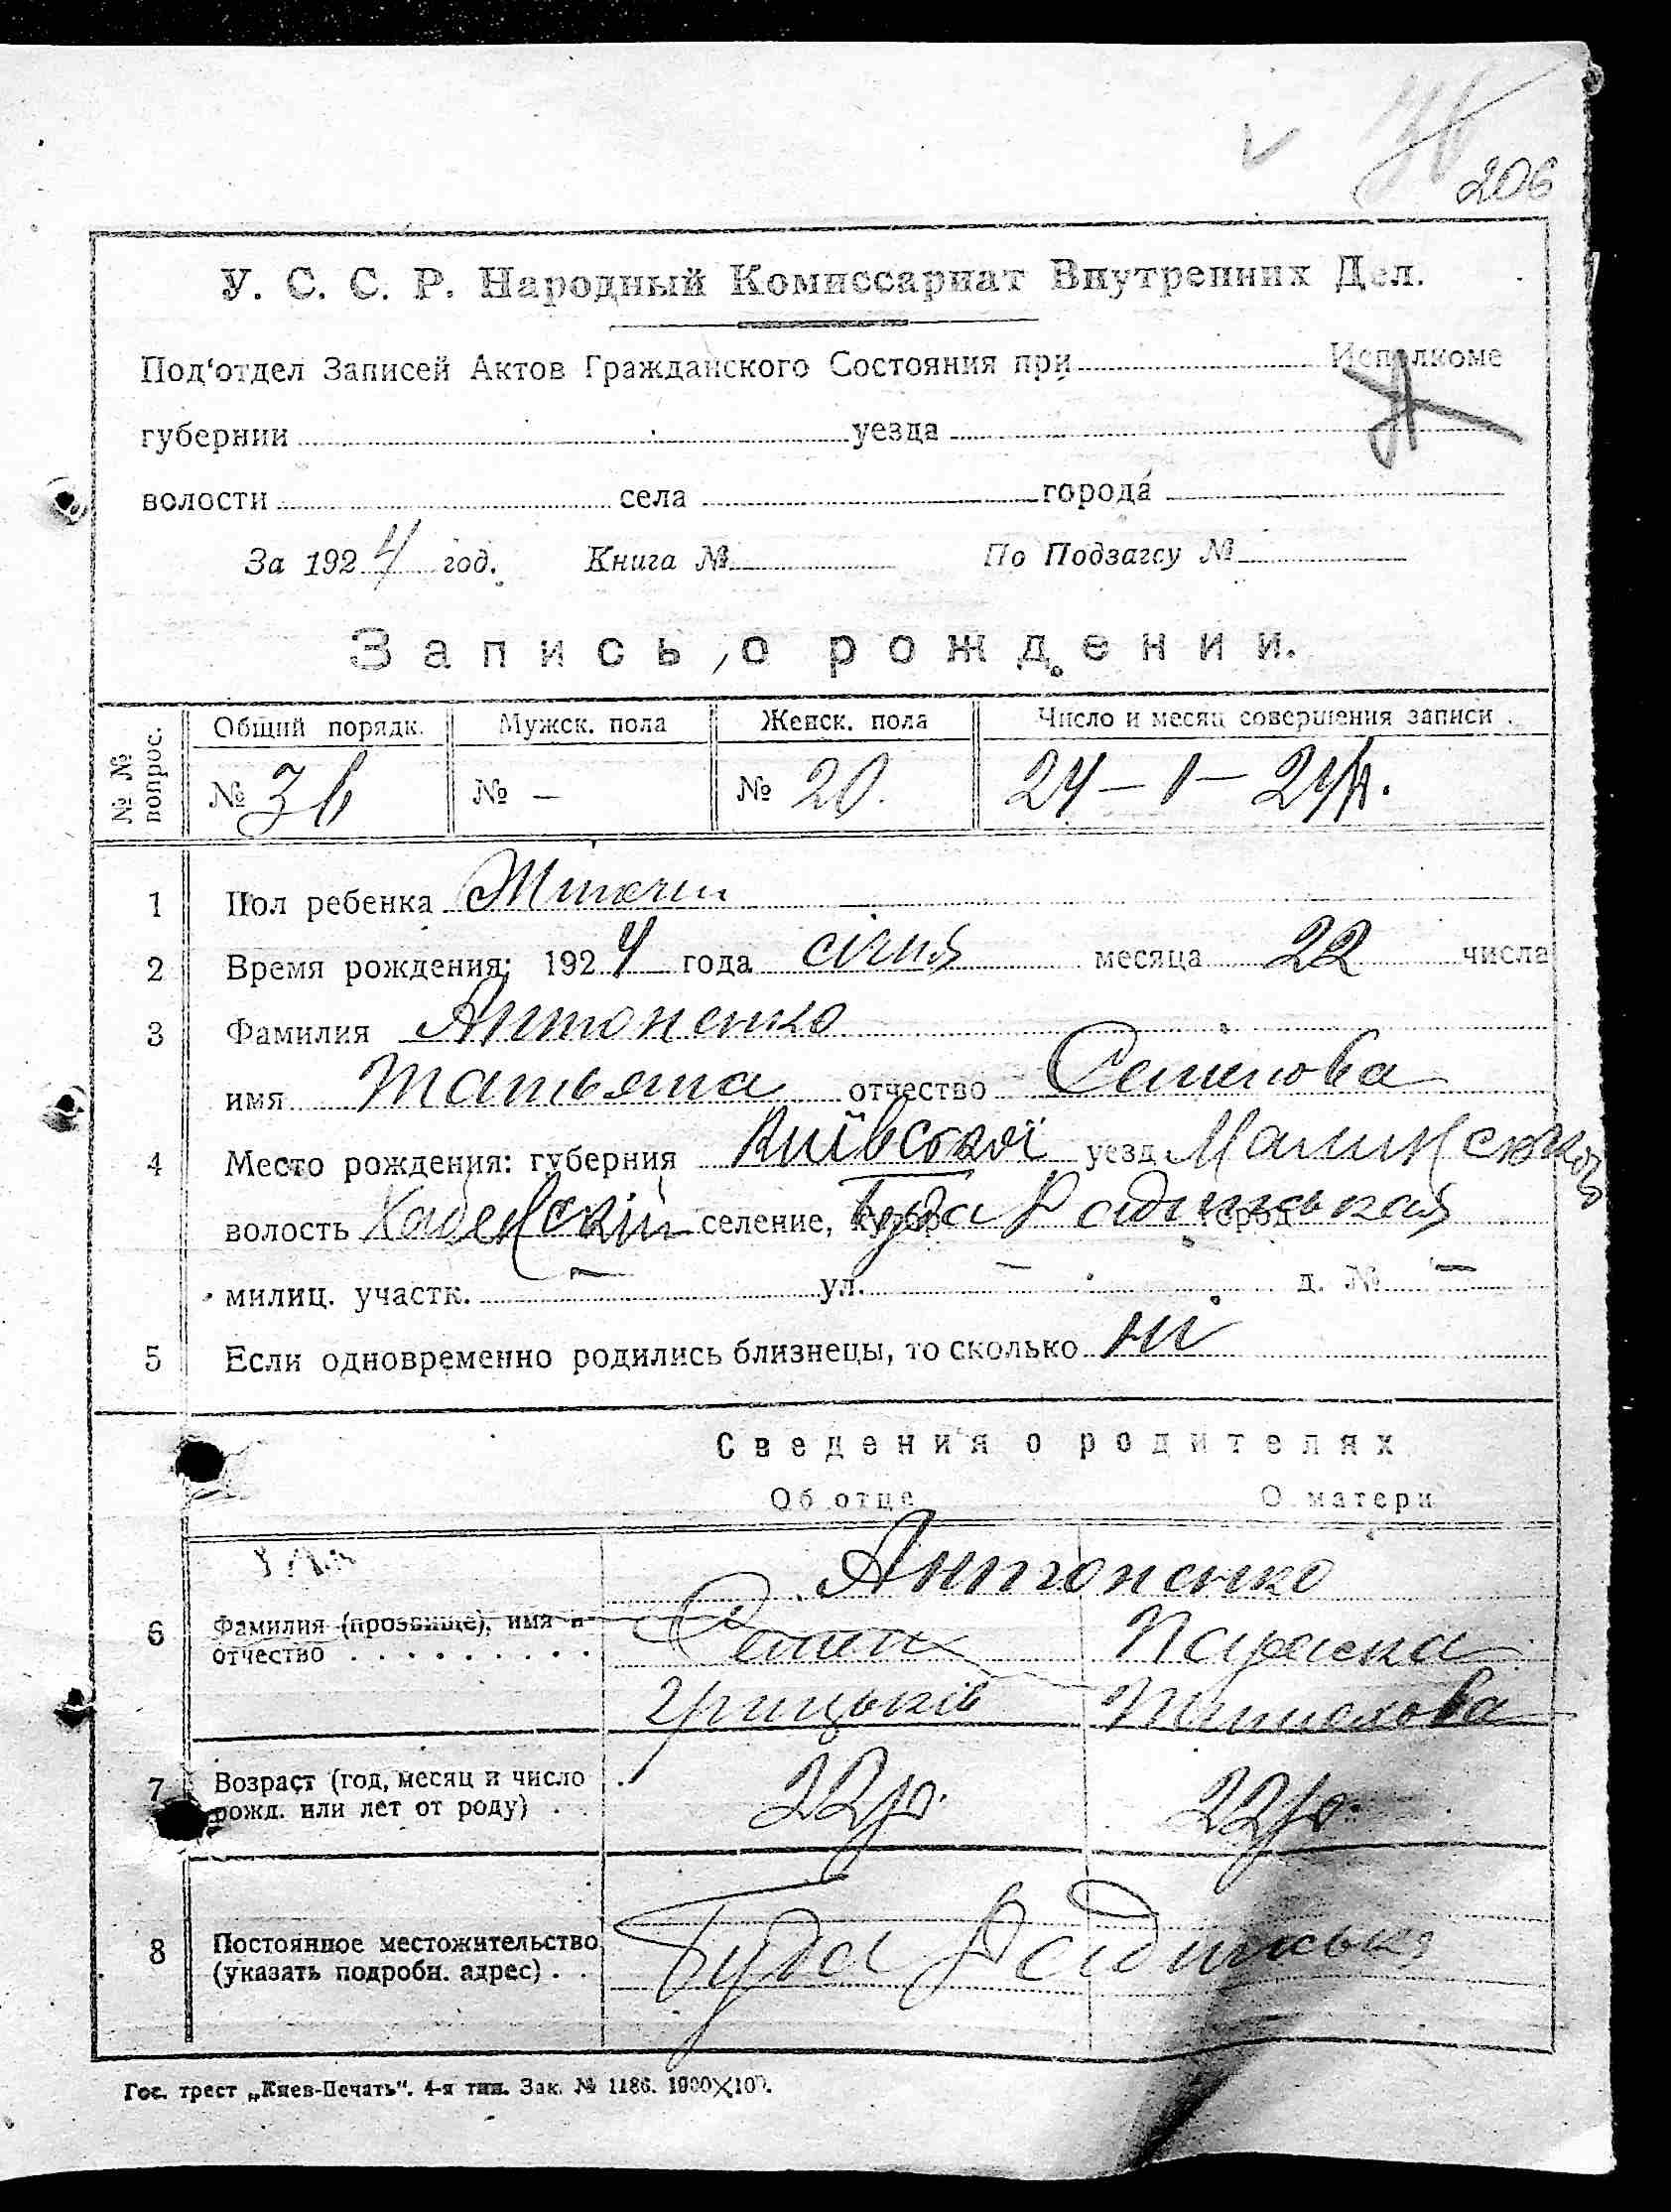 206
У. С. С. Р. Народный Комиссариат Внутренних Дел.
Под'отдел Записей Актов Гражданского Состояния при Исполкоме
губернии уезда
волости села города
За 1924 год. Книга № По Подзагсу №
Запись о рождении.
№ № вопрос. Общий порядк. Мужск. пола Женск. пола Число и месяц совершения записи
№ 36 № — № 20. 24 – 1 – 24р.
1 Пол ребенка Жіночи
2 Время рождения: 1924 года січня месяца 22 числа
3 Фамилия Антоненко
имя Татьяна отчество Семенова
4 Место рождения: губерния Київської уезд Малинського
волость Хабенский селение, хутор Буда Радинськая город
милиц. участк. — ул. — д. № —
5 Если одновременно родились близнецы, то сколько ні
Сведения о родителях
Об отце О матери
Антоненко
6 Фамилия (прозвище), имя и Семен Параска
отчество
Грицьків
7 Возраст (год, месяц и число 22р. 22р.
рожд. или лет от роду)
8 Постоянное местожительство Буда Радинська
(указать подробн. адрес)
Гос. трест „Киев-Печать“. 4-я тип. Зак. № 1186. 1000×100.